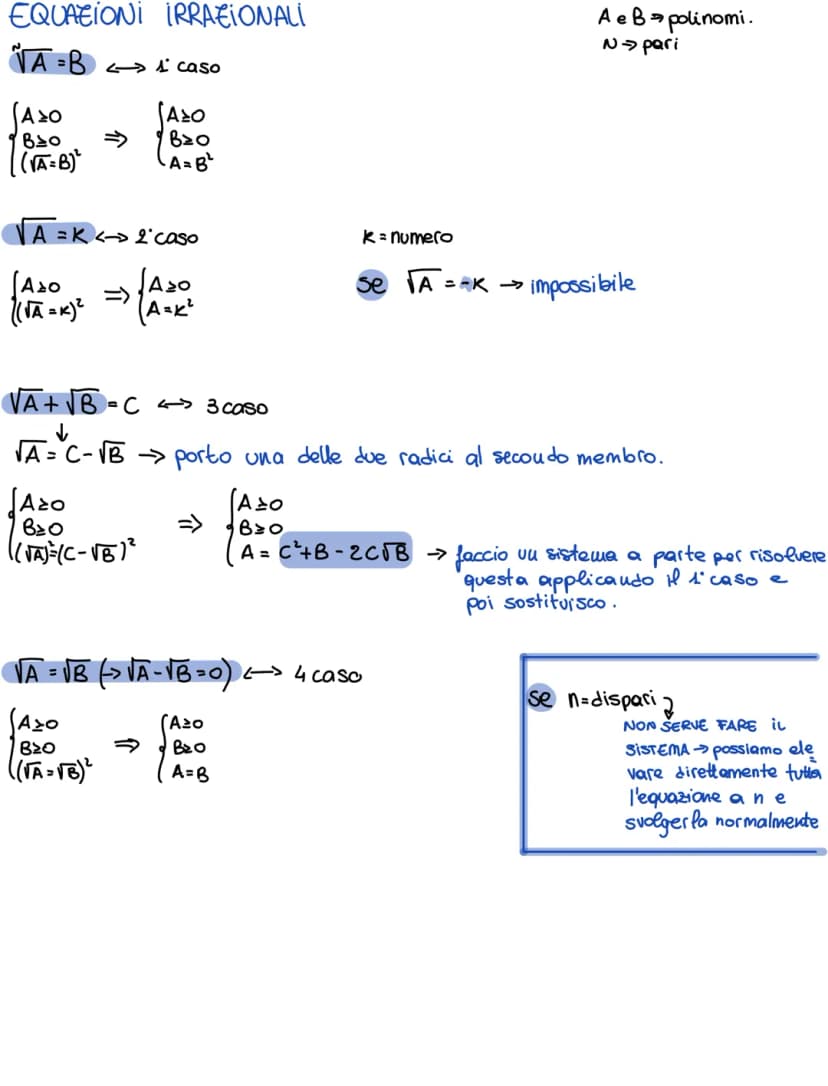 EQUAZIONI IRRAZIONALI
A e B ⇒ polinomi.
N → pari
ⁿ√A = B ⟷ 1° caso
{A≥0 {A≥0
{B≥0 ⇒ {B≥0
{(√A=B)² {A=B²
√A = K ⟷ 2° caso K = numero
{A≥0 ⇒ {A≥0 se √A = -K → impossibile
{(√A=K)² {A=K²
√A + √B = C ⟷ 3 caso
↓
√A = C-√B → porto una delle due radici al secoudo membro.
{A≥0 {A≥0
{B≥0 ⇒ {B≥0
{(√A)²=(C-√B)² {A = C²+B-2C√B → faccio uu sistema a parte per risolvere
questa applicaudo il 1° caso e
poi sostituisco.
√A = √B (→√A-√B=0) ⟷ 4 caso
{A≥0 {A≥0
{B≥0 ⇒ {B≥0
{(√A=√B)² {A=B
se n=dispari
NON SERVE FARE iL
SiSTEMA → possiamo ele
vare direttamente tutta
l'equazione a n e
svolgerla normalmente